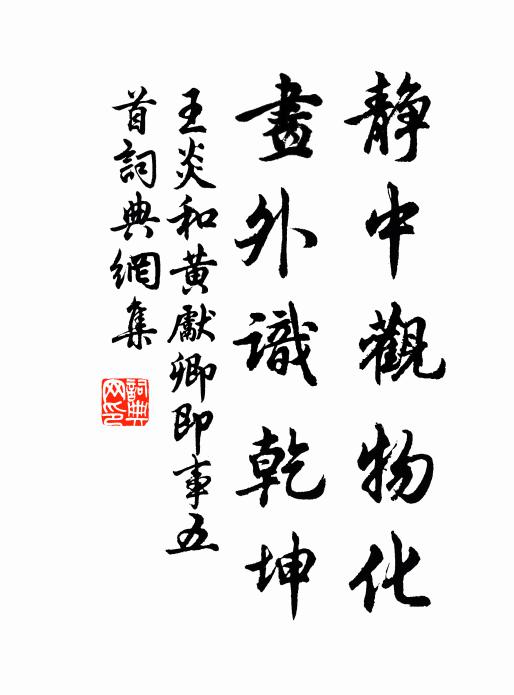 静中觀物化
畫外識乾坤
王炎和黃獻卿即事五
首詞典網集
詞典
网印